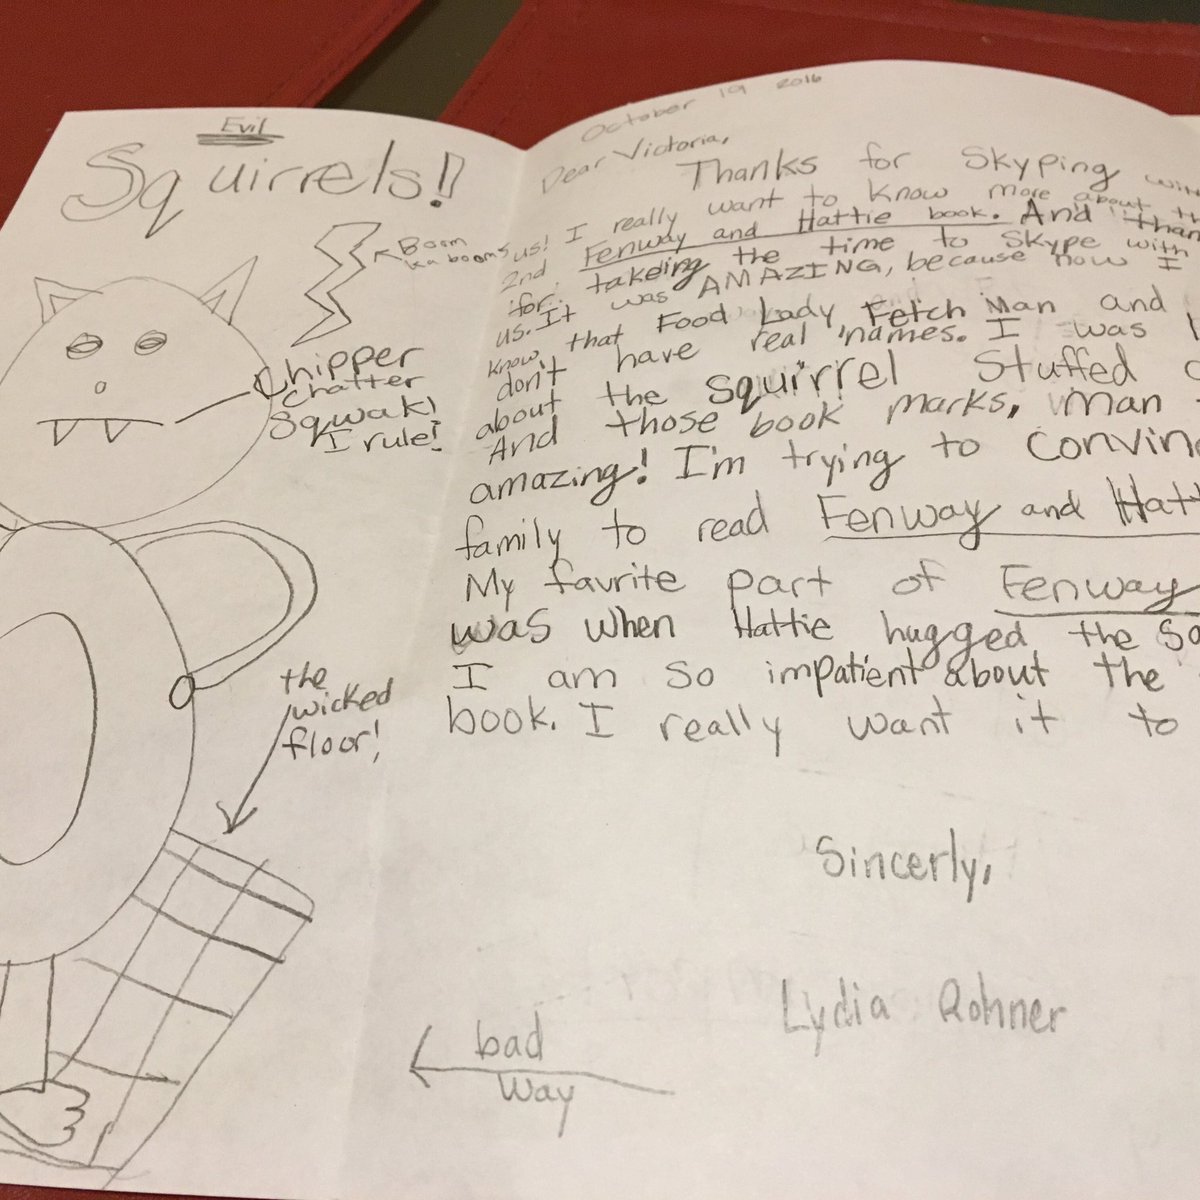 Evil
Squirrels!
Boom
ka booms
Chipper
chatter
Sqwak!
I rule!
the
wicked
floor!
October 19 2016
Dear Victoria,
Thanks for Skyping with
us! I really want to know more about th
2nd Fenway and Hattie book. And than
for takeing the time to Skype with
us. It was AMAZING, because now I
know that Food Lady, Fetch Man and
don't have real names. I was l
about the squirrel stuffed
And those book marks, man
amazing! I'm trying to convinc
family to read Fenway and Hatt
My favrite part of Fenway
was when Hattie hugged the Sq
I am so impatient about the
book. I really want it to
Sincerly,
Lydia Rohner
bad
way